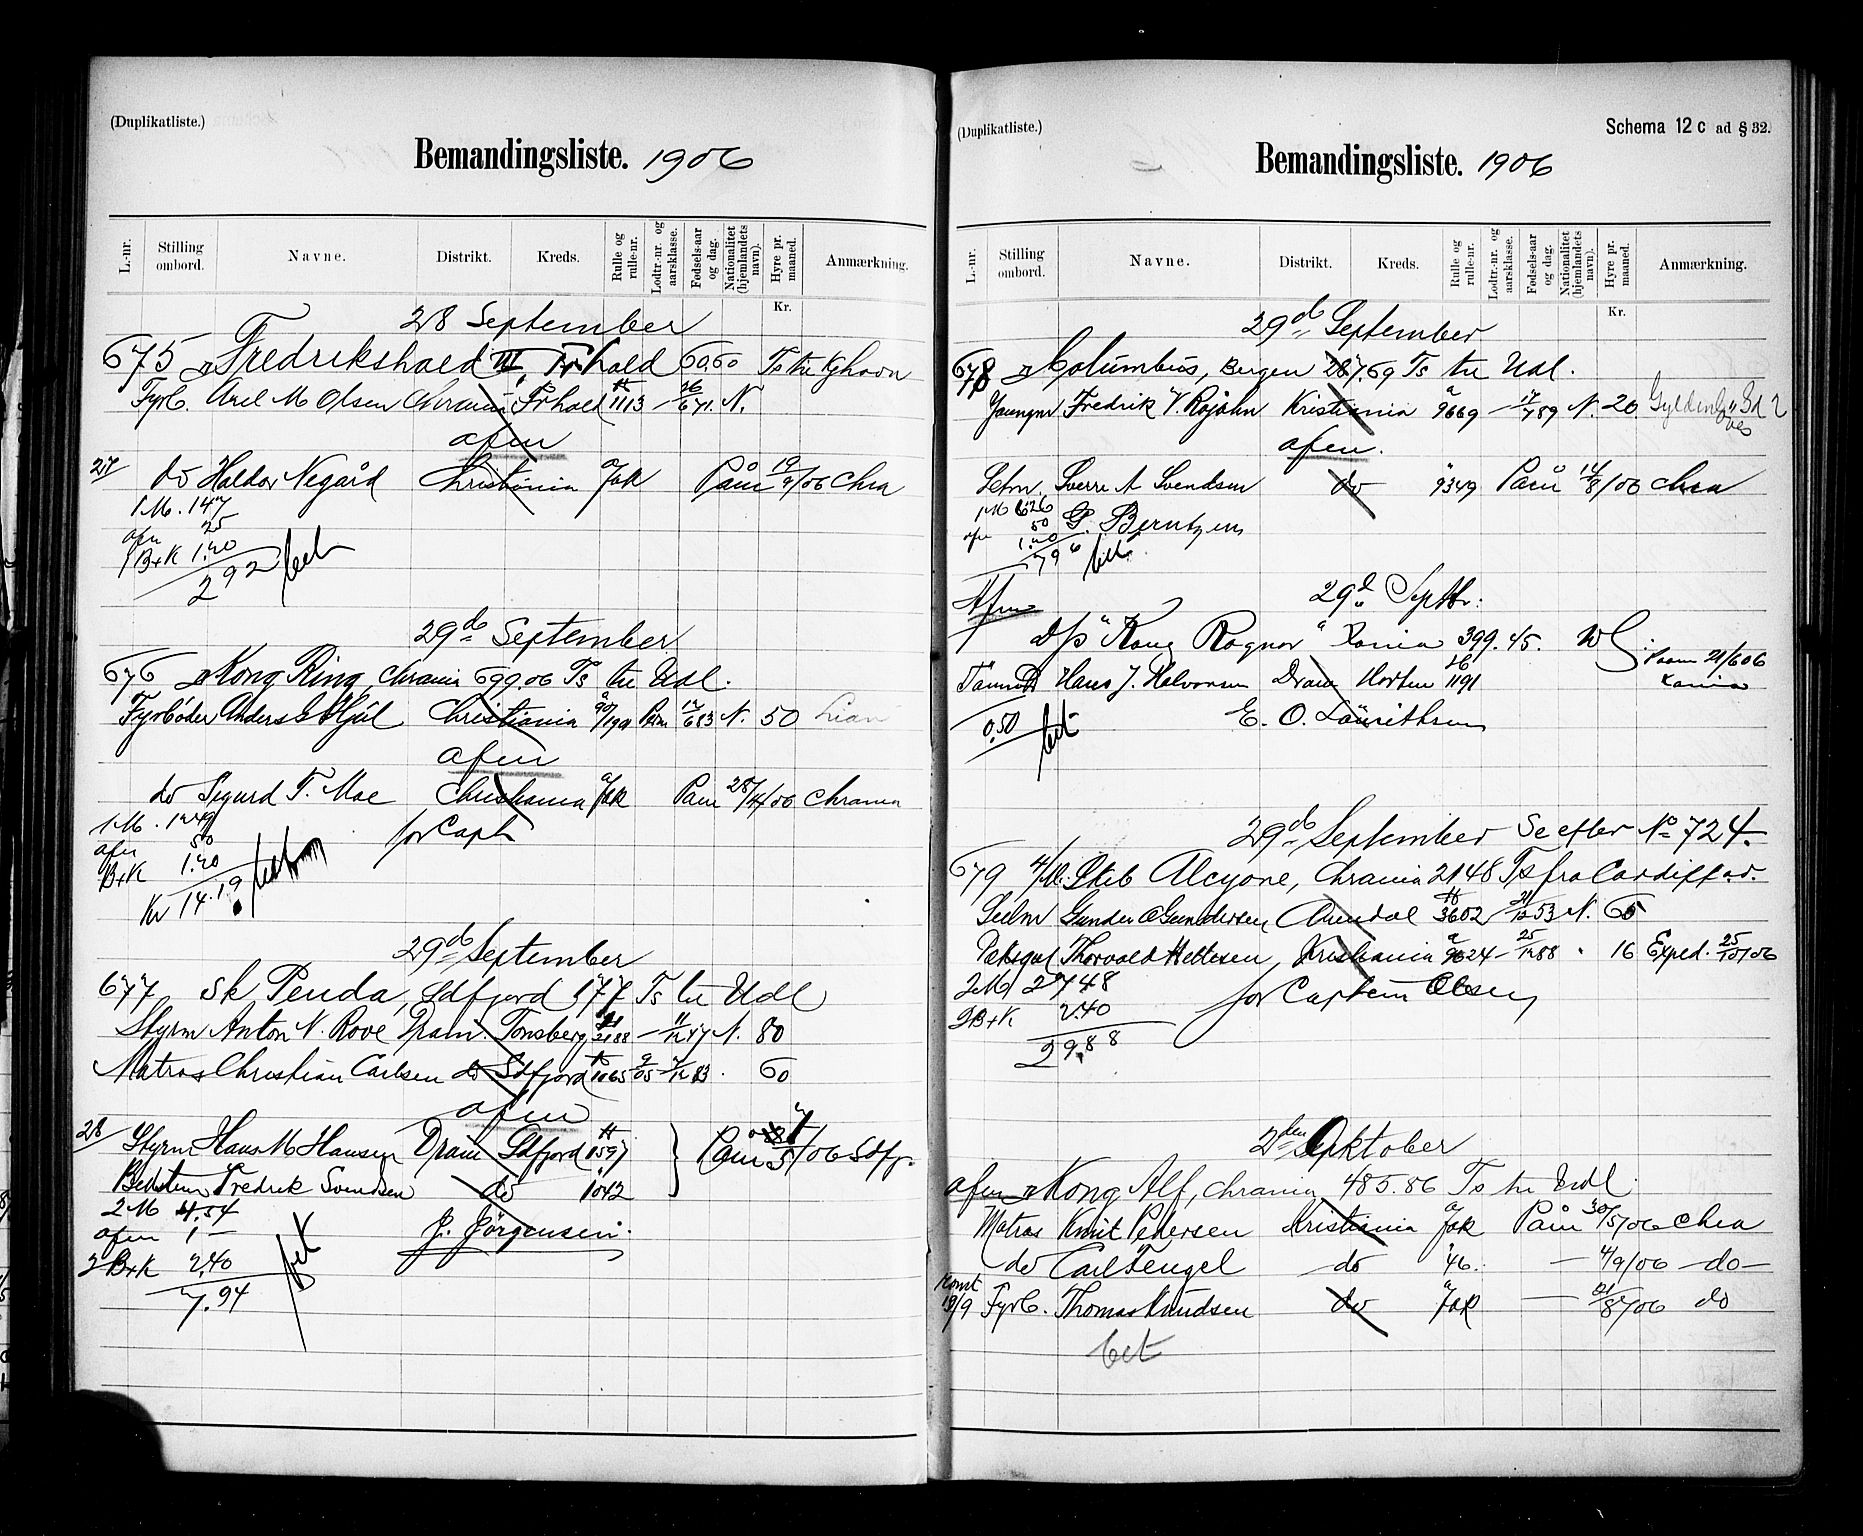 (Duplikatliste.)
Bemandingsliste. 1906
L.-nr. Stilling ombord. Navne. Distrikt. Kreds. Rulle og rulle-nr. Lodtr.-nr. og aarsklasse. Fødsels-aar og dag. Nationalitet (hjemlandets navn). Hyre pr. maaned. Anmærkning.
Kr.
28 September
675 Fredrikshald III, Frhald 60.60 Ts til Kjhavn
Fyrb. Axel M Olsen Chrania Frhald 1113 26/6 71. N.
afm
27 do Haldor Negård Christiania Påm 19/9/06 Chra
1 M. 147
afm 25
1 B+K 1.20
292 bet
29de September
676 Kong Ring, Chrania 699.06 Ts til Udl.
Fyrbøder Anders G Hjul Christiania 17/6 83 N. 50
afm
do Sigurd T. Moe Christiania Påm 28/4/06 Chrania
1 M. 1249 for Capt
afm 50
B+K 1.20
Kr 14.19
29de September
677 Sk Penda, Sdfjord 577 Ts til Udl
Styrm Anton N. Rove Dram. Tønsberg 2188 – 11/12 47 N. 80
Matros Christian Carlsen do Sdfjord 1065 9/05 60
afm
28 Styrm Hans M Hansen Dram Sdfjord 1597 Påm /06 Sdfj.
Bedstem Fredrik Svendsen do 1042
2 M 4.54 J. Jörgensen.
afm 1 –
2 B+K 2.40
7.94 bet
(Duplikatliste.)
Schema 12 c ad § 32.
Bemandingsliste. 1906
L.-nr. Stilling ombord. Navne. Distrikt. Kreds. Rulle og rulle-nr. Lodtr.-nr. og aarsklasse. Fødsels-aar og dag. Nationalitet (hjemlandets navn). Hyre pr. maaned. Anmærkning.
Kr.
29de September
678 Columbus, Bergen 287.69 Ts til Udl.
Youngm Fredrik V. Rojahn Kristiania 9669 – 17/7 89 N. 20
afm.
Letm. Sverre A Svendsen do 9349 Påm 14/8/06 Chra
1 M 626 G. Berntzen
afm 50
1.20
796 bet.
29de Septbr.
Afm
D/s "Kong Ragnar" Xania 399.45.
Hans J. Halvorsen Dram Horten 1191 Paam 21/6 06 Xania
0,50 bet E. O. Lauritsen
29de September Se efter No 724.
679 4/M. Skib Alcyone, Chrania 2148 Ts fra Cardiff o.v.
Seilm Gunder O Gundersen, Arendal 3602 53 N. 65
Thorvald Kristiania 9624 – 25/12 88 " 16 Exped. 25/10/06
2 M 2748 for Captein Olsen
2 B+K 2.40
29.88
2den Oktober
afm Kong Alf, Chrania 485.86 Ts til Udl.
Matros Knut Pedersen Kristiania Påm 30/5/06 Chra
do Carl Fengel do 46. – 4/9/06 – do –
Konst 19/9 Fyrb. Thomas Knudsen do – 21/8/06 do
bet